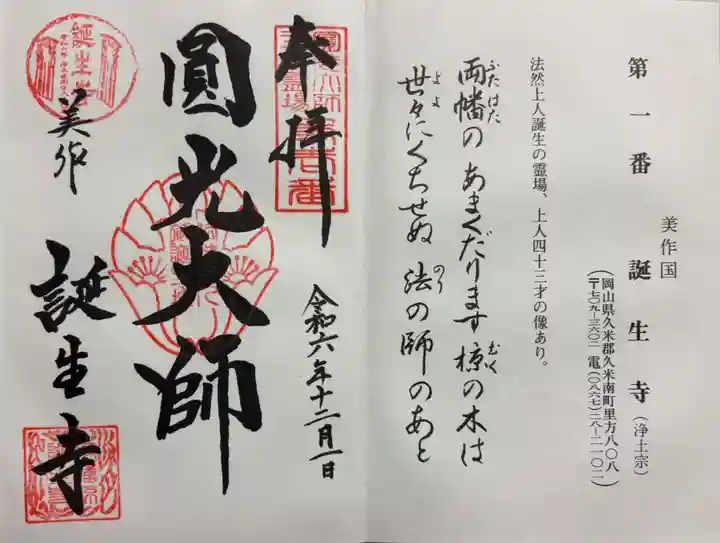 第一番 美作国 誕生寺(浄土宗)
(岡山県久米郡久米南町里方八〇八
〒七〇九―三六〇二 電(〇八六七)二八―二一〇二)
法然上人誕生の霊場、上人四十三才の像あり。
両幡の あまくだります 椋の木は
ふたはた
むく
世々にくちせぬ 法の師のあと
よよ
のり
奉拝
令和六年十二月一日
圓光大師
美作 誕生寺
誕生寺